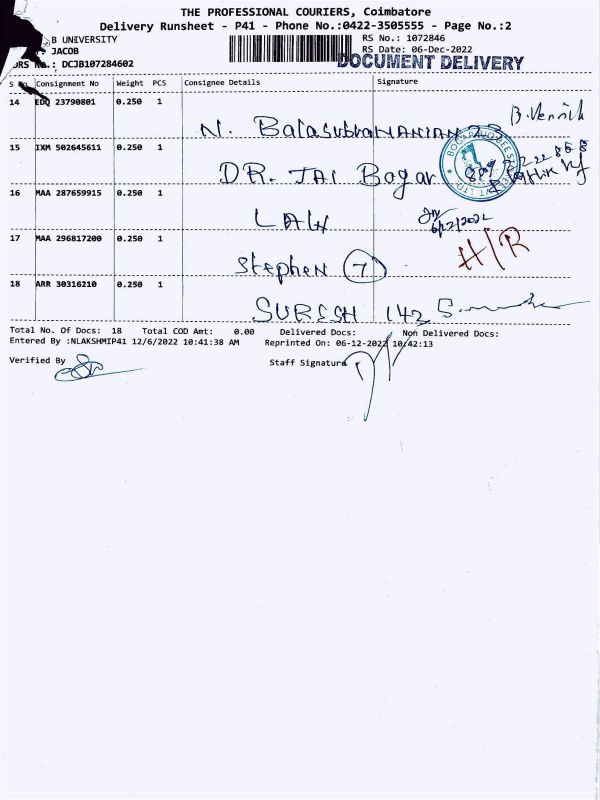 THE PROFESSIONAL COURIERS, Coimbatore
Delivery Runsheet - P41 - Phone No.:0422-3505555 - Page No.:2
B UNIVERSITY
JACOB
DRS No.: DCJB107284602
RS No.: 1072846
RS Date: 06-Dec-2022
DOCUMENT DELIVERY
S No. Consignment No Weight PCS Consignee Details Signature
14 EDQ 23790801 0.250 1
N. Balasubramanian B. Vennila
15 IXM 502645611 0.250 1
DR. JAI Bogar
16 MAA 287659915 0.250 1
LAW 6/12/2022
17 MAA 296817200 0.250 1 H/R
Stephen 7
18 ARR 30316210 0.250 1
SURESH 142
Total No. Of Docs: 18 Total COD Amt: 0.00 Delivered Docs: Non Delivered Docs:
Entered By :NLAKSHMIP41 12/6/2022 10:41:38 AM Reprinted On: 06-12-2022 10:42:13
Verified By Staff Signature